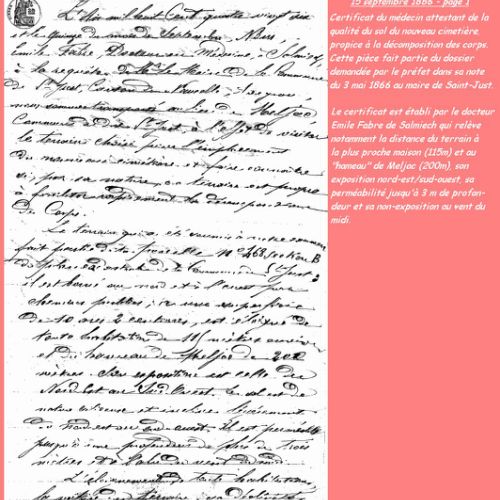 L'An mil huit Cent quatre vingt six
et le quinze du mois de Septembre, Nous
Emile Fabre Docteur en Médecine, à Salmiech,
à la requête de Mr le Maire de la Commune
de St Just, Canton de Naucelle,
nous sommes transporté au lieu de Meljac
Commune de St Just, à l'effet de visiter
le terrain choisi pour l'emplacement
du nouveau cimetière, et faire connaître
si, par sa nature, ce terrain est propre
à
de Corps.
Le terrain qui a été soumis à notre examen
fait partie de la parcelle No 468 Section B
du plan cadastral de la Commune de St Just
il est borné au nord et à l'ouest par
chemins publics; a une superficie
de 10 ares 2 centiares, est éloigné de
toute habitation de 115 mètres environ
et du hameau de Meljac de 200
mètres. Son exposition est celle du
Nord Est au Sud Ouest. Le sol est de
nature et incliné légèrement
du nord-est au sud-ouest. Il est perméable
jusqu'à une profondeur de plus de trois
mètres et à l'abri du vent du midi.
L'éloignement de toute habitation,
la nature du terrain, sa
15 septembre 1886 - page 1
Certificat du médecin attestant de la
qualité du sol du nouveau cimetière,
propice à la décomposition des corps.
Cette pièce fait partie du dossier
demandée par le préfet dans sa note
du 3 mai 1866 au maire de Saint-Just.
Le certificat est établi par le docteur
Emile Fabre de Salmiech qui relève
notamment la distance du terrain à
la plus proche maison (115m) et au
"hameau" de Meljac (200m), son
exposition nord-est/sud-ouest, sa
perméabilité jusqu'à 3 m de profon-
deur et sa non-exposition au vent du
midi.